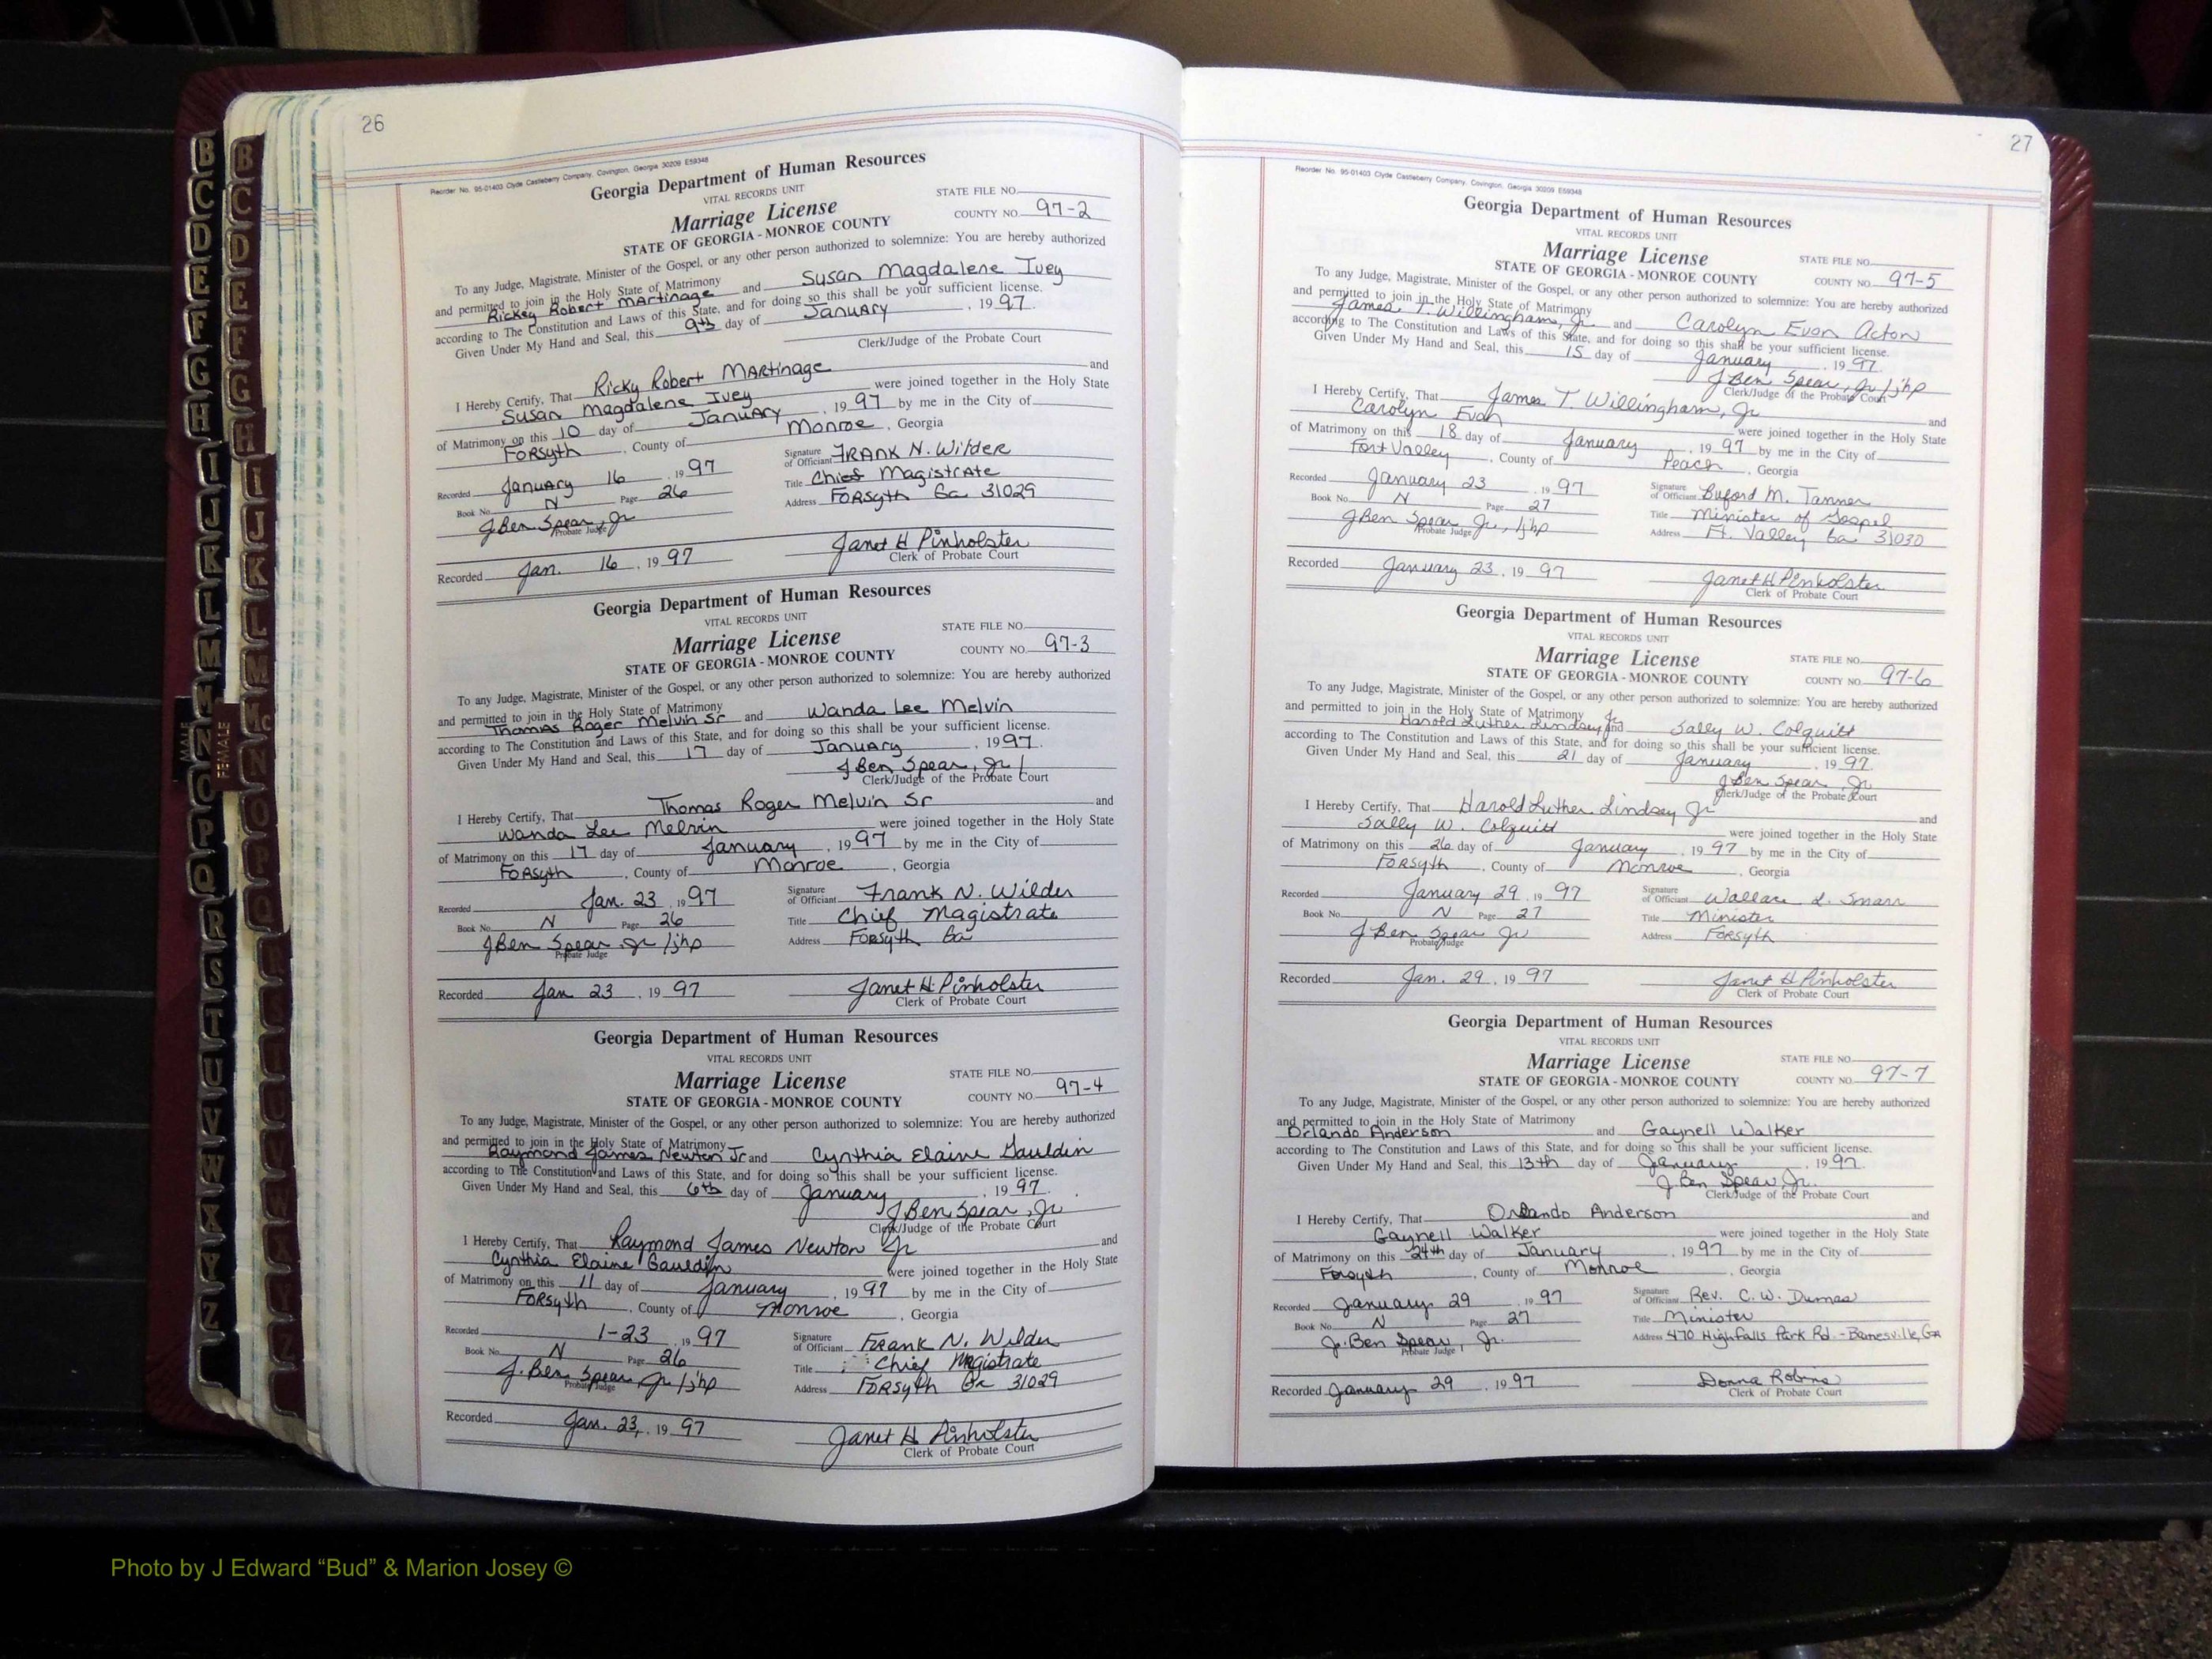 26
Reorder No. 95-01403 Clyde Castleberry Company, Covington, Georgia 30209 E59348
Georgia Department of Human Resources
VITAL RECORDS UNIT
STATE FILE NO.
Marriage License
COUNTY NO. 97-2
STATE OF GEORGIA - MONROE COUNTY
To any Judge, Magistrate, Minister of the Gospel, or any other person authorized to solemnize: You are hereby authorized
and permitted to join in the Holy State of Matrimony
Rickey Robert Martinage and Susan Magdalene Ivey
according to The Constitution and Laws of this State, and for doing so this shall be your sufficient license.
Given Under My Hand and Seal, this 9th day of January, 1997.
Clerk/Judge of the Probate Court
I Hereby Certify, That Ricky Robert Martinage and
Susan Magdalene Ivey were joined together in the Holy State
of Matrimony on this 10 day of January, 1997 by me in the City of
Forsyth, County of Monroe, Georgia
Recorded January 16, 1997
Signature of Officiant Frank N. Wilder
Book No. N Page 26
Title Chief Magistrate
J Ben Spear, Jr
Probate Judge
Address Forsyth Ga 31029
Recorded Jan. 16, 1997
Janet H Pinholster
Clerk of Probate Court
Georgia Department of Human Resources
VITAL RECORDS UNIT
STATE FILE NO.
Marriage License
COUNTY NO. 97-3
STATE OF GEORGIA - MONROE COUNTY
To any Judge, Magistrate, Minister of the Gospel, or any other person authorized to solemnize: You are hereby authorized
and permitted to join in the Holy State of Matrimony
Thomas Roger Melvin Sr and Wanda Lee Melvin
according to The Constitution and Laws of this State, and for doing so this shall be your sufficient license.
Given Under My Hand and Seal, this 17 day of January, 1997.
J Ben Spear, Jr /
Clerk/Judge of the Probate Court
I Hereby Certify, That Thomas Roger Melvin Sr and
Wanda Lee Melvin were joined together in the Holy State
of Matrimony on this 17 day of January, 1997 by me in the City of
Forsyth, County of Monroe, Georgia
Recorded Jan. 23, 1997
Signature of Officiant Frank N. Wilder
Book No. N Page 26
Title Chief Magistrate
J Ben Spear, Jr /jhp
Probate Judge
Address Forsyth Ga
Recorded Jan 23, 1997
Janet H. Pinholster
Clerk of Probate Court
Georgia Department of Human Resources
VITAL RECORDS UNIT
STATE FILE NO.
Marriage License
COUNTY NO. 97-4
STATE OF GEORGIA - MONROE COUNTY
To any Judge, Magistrate, Minister of the Gospel, or any other person authorized to solemnize: You are hereby authorized
and permitted to join in the Holy State of Matrimony
Raymond James Newton Jr and Cynthia Elaine Gauldin
according to The Constitution and Laws of this State, and for doing so this shall be your sufficient license.
Given Under My Hand and Seal, this 6th day of January, 1997.
J Ben Spear, Jr
Clerk/Judge of the Probate Court
I Hereby Certify, That Raymond James Newton Jr and
Cynthia Elaine Gauldin were joined together in the Holy State
of Matrimony on this 11 day of January, 1997 by me in the City of
Forsyth, County of Monroe, Georgia
Recorded 1-23, 1997
Signature of Officiant Frank N. Wilder
Book No. N Page 26
Title Chief Magistrate
J. Ben Spear, Jr /jhp
Probate Judge
Address Forsyth Ga 31029
Recorded Jan. 23, 1997
Janet H Pinholster
Clerk of Probate Court
27
Reorder No. 95-01403 Clyde Castleberry Company, Covington, Georgia 30209 E59348
Georgia Department of Human Resources
VITAL RECORDS UNIT
Marriage License
STATE FILE NO.
STATE OF GEORGIA - MONROE COUNTY
COUNTY NO. 97-5
To any Judge, Magistrate, Minister of the Gospel, or any other person authorized to solemnize: You are hereby authorized
and permitted to join in the Holy State of Matrimony
James T. Willingham, Jr and Carolyn Evon Acton
according to The Constitution and Laws of this State, and for doing so this shall be your sufficient license.
Given Under My Hand and Seal, this 15 day of January, 1997.
J Ben Spear, Jr /jhp
Clerk/Judge of the Probate Court
I Hereby Certify, That James T. Willingham, Jr and
Carolyn Evon were joined together in the Holy State
of Matrimony on this 18 day of January, 1997 by me in the City of
Fort Valley, County of Peach, Georgia
Recorded January 23, 1997
Signature of Officiant Buford M. Tanner
Book No. N Page 27
Title Minister of Gospel
J Ben Spear Jr, /jhp
Probate Judge
Address Ft. Valley Ga 31030
Recorded January 23, 1997
Janet H Pinholster
Clerk of Probate Court
Georgia Department of Human Resources
VITAL RECORDS UNIT
Marriage License
STATE FILE NO.
STATE OF GEORGIA - MONROE COUNTY
COUNTY NO. 97-6
To any Judge, Magistrate, Minister of the Gospel, or any other person authorized to solemnize: You are hereby authorized
and permitted to join in the Holy State of Matrimony
Harold Luther Lindsey Jr and Sally W. Colquitt
according to The Constitution and Laws of this State, and for doing so this shall be your sufficient license.
Given Under My Hand and Seal, this 21 day of January, 1997.
J Ben Spear, Jr
Clerk/Judge of the Probate Court
I Hereby Certify, That Harold Luther Lindsay Jr and
Sally W. Colquitt were joined together in the Holy State
of Matrimony on this 26 day of January, 1997 by me in the City of
Forsyth, County of Monroe, Georgia
Recorded January 29, 1997
Signature of Officiant Wallace L. Smarr
Book No. N Page 27
Title Minister
J Ben Spear Jr
Probate Judge
Address Forsyth
Recorded Jan. 29, 1997
Janet H Pinholster
Clerk of Probate Court
Georgia Department of Human Resources
VITAL RECORDS UNIT
Marriage License
STATE FILE NO.
STATE OF GEORGIA - MONROE COUNTY
COUNTY NO. 97-7
To any Judge, Magistrate, Minister of the Gospel, or any other person authorized to solemnize: You are hereby authorized
and permitted to join in the Holy State of Matrimony
Orlando Anderson and Gaynell Walker
according to The Constitution and Laws of this State, and for doing so this shall be your sufficient license.
Given Under My Hand and Seal, this 13th day of January, 1997.
J. Ben Spear, Jr.
Clerk/Judge of the Probate Court
I Hereby Certify, That Orlando Anderson and
Gaynell Walker were joined together in the Holy State
of Matrimony on this 24th day of January, 1997 by me in the City of
Forsyth, County of Monroe, Georgia
Recorded January 29, 1997
Signature of Officiant Rev. C. W. Dumas
Book No. N Page 27
Title Minister
J. Ben Spear, Jr.
Probate Judge
Address 470 High Falls Park Rd. - Barnesville, GA
Recorded January 29, 1997
Donna Robins
Clerk of Probate Court
B C D E F G H I J K L M Mc N O P Q R S T U V W X Y Z
MALE
B C D E F G H I J K L M Mc N O P Q
FEMALE
Photo by J Edward “Bud” & Marion Josey ©